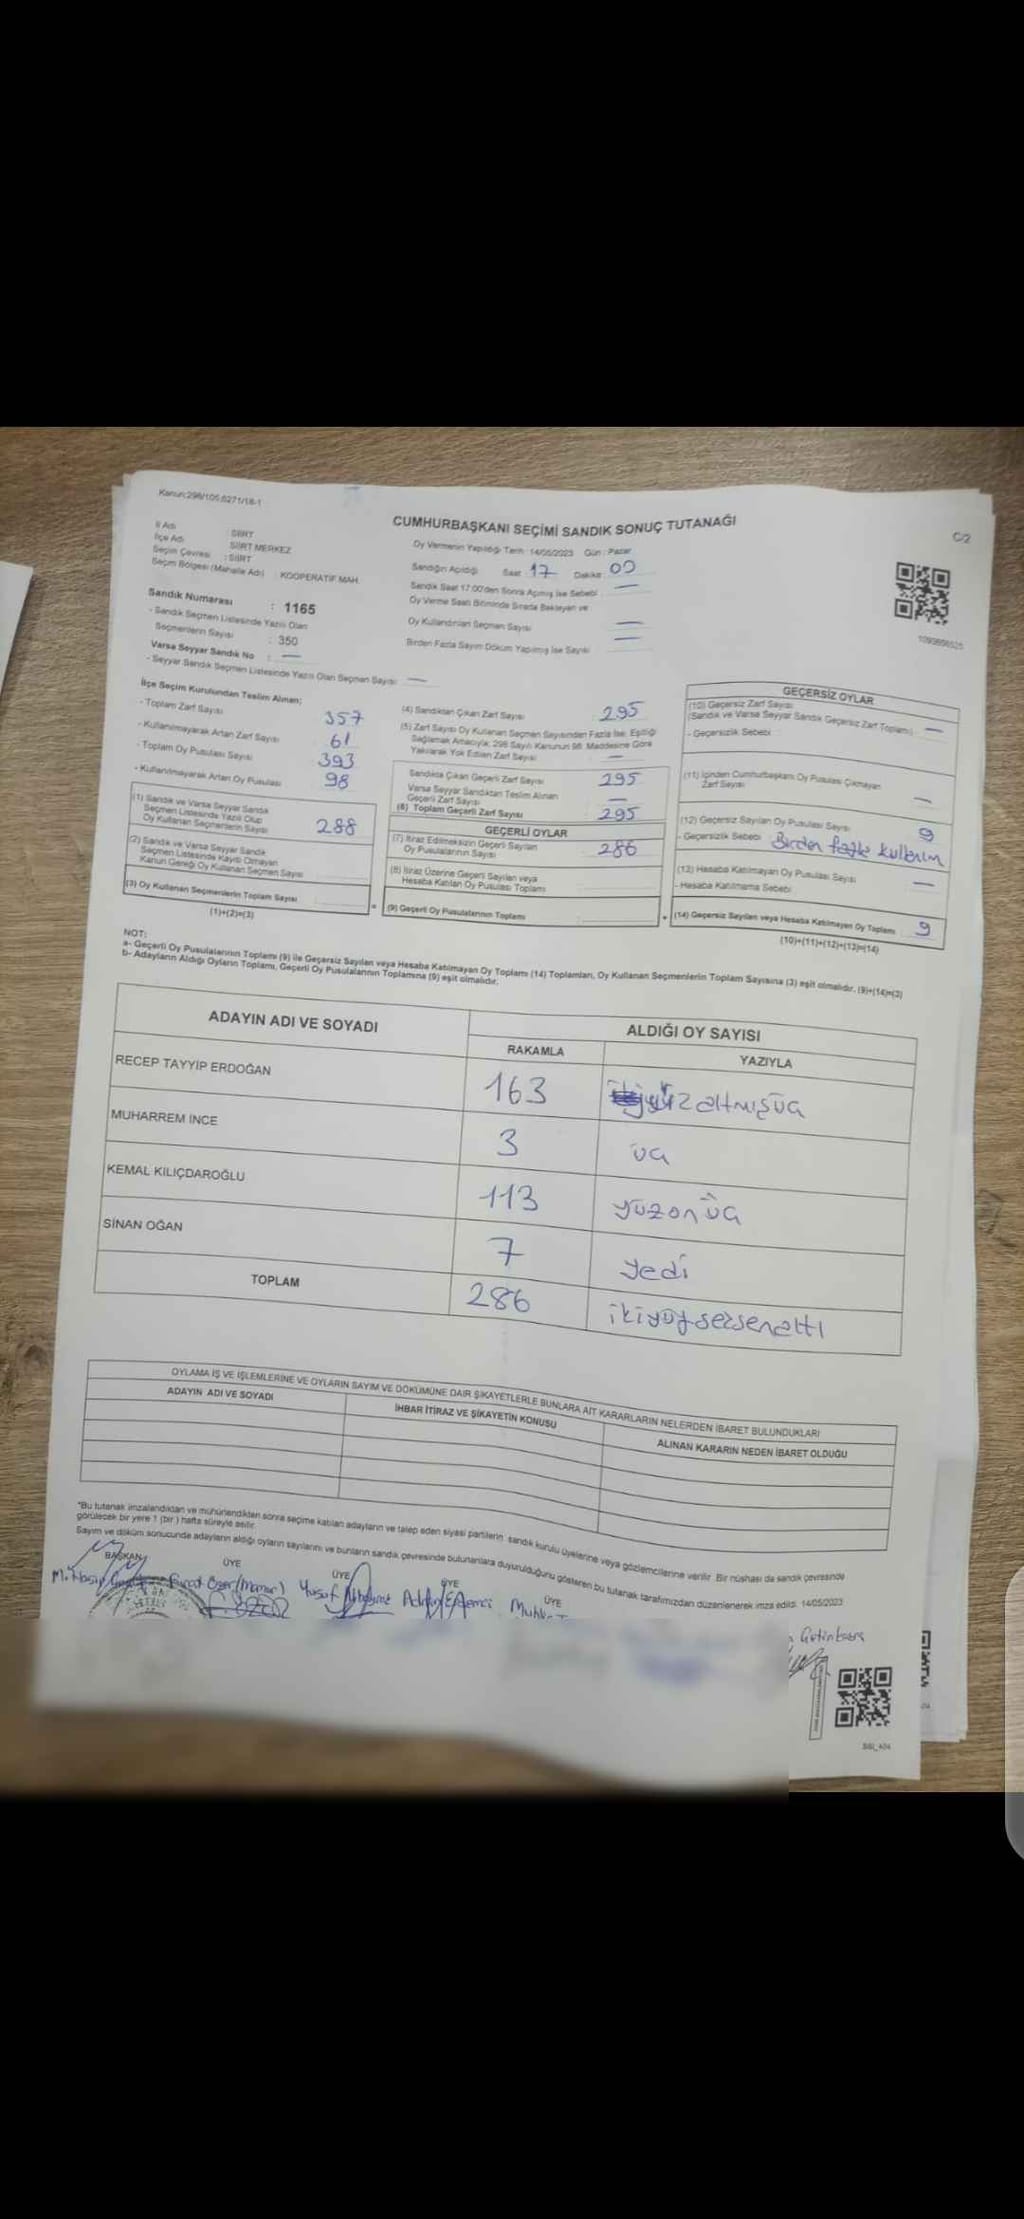 Kanun:298/105,6271/18-1
CUMHURBAŞKANI SEÇİMİ SANDIK SONUÇ TUTANAĞI
C/2
İl Adı : SİİRT
İlçe Adı : SİİRT MERKEZ
Seçim Çevresi : SİİRT
Seçim Bölgesi (Mahalle Adı) : KOOPERATİF MAH.
Oy Vermenin Yapıldığı Tarih : 14/05/2023 Gün : Pazar
Sandığın Açıldığı Saat 17 Dakika 00
Sandık Saat 17:00'den Sonra Açılmış İse Sebebi : —
Oy Verme Saati Bitiminde Sırada Bekleyen ve
Oy Kullandırılan Seçmen Sayısı —
Birden Fazla Sayım Döküm Yapılmış İse Sayısı —
Sandık Numarası : 1165
- Sandık Seçmen Listesinde Yazılı Olan
Seçmenlerin Sayısı : 350
Varsa Seyyar Sandık No : —
- Seyyar Sandık Seçmen Listesinde Yazılı Olan Seçmen Sayısı —
İlçe Seçim Kurulundan Teslim Alınan;
- Toplam Zarf Sayısı 357
- Kullanılmayarak Artan Zarf Sayısı 61
- Toplam Oy Pusulası Sayısı 393
- Kullanılmayarak Artan Oy Pusulası 98
(1) Sandık ve Varsa Seyyar Sandık
Seçmen Listesinde Yazılı Olup
Oy Kullanan Seçmenlerin Sayısı 288
(2) Sandık ve Varsa Seyyar Sandık
Seçmen Listesinde Kaydı Olmayan
Kanun Gereği Oy Kullanan Seçmen Sayısı
(3) Oy Kullanan Seçmenlerin Toplam Sayısı
(1)+(2)=(3)
(4) Sandıktan Çıkan Zarf Sayısı 295
(5) Zarf Sayısı Oy Kullanan Seçmen Sayısından Fazla İse, Eşitliği
Sağlamak Amacıyla; 298 Sayılı Kanunun 98. Maddesine Göre
Yakılarak Yok Edilen Zarf Sayısı —
Sandıkta Çıkan Geçerli Zarf Sayısı 295
Varsa Seyyar Sandıktan Teslim Alınan
Geçerli Zarf Sayısı —
(6) Toplam Geçerli Zarf Sayısı 295
GEÇERLİ OYLAR
(7) İtiraz Edilmeksizin Geçerli Sayılan
Oy Pusulalarının Sayısı 286
(8) İtiraz Üzerine Geçerli Sayılan veya
Hesaba Katılan Oy Pusulası Toplamı
(9) Geçerli Oy Pusulalarının Toplamı
GEÇERSİZ OYLAR
(10) Geçersiz Zarf Sayısı
(Sandık ve Varsa Seyyar Sandık Geçersiz Zarf Toplamı) —
- Geçersizlik Sebebi
(11) İçinden Cumhurbaşkanı Oy Pusulası Çıkmayan
Zarf Sayısı —
(12) Geçersiz Sayılan Oy Pusulası Sayısı 9
- Geçersizlik Sebebi Birden fazla kullanım
(13) Hesaba Katılmayan Oy Pusulası Sayısı —
- Hesaba Katılmama Sebebi
(14) Geçersiz Sayılan veya Hesaba Katılmayan Oy Toplamı 9
(10)+(11)+(12)+(13)=(14)
NOT:
a- Geçerli Oy Pusulalarının Toplamı (9) ile Geçersiz Sayılan veya Hesaba Katılmayan Oy Toplamı (14) Toplamları, Oy Kullanan Seçmenlerin Toplam Sayısına (3) eşit olmalıdır. (9)+(14)=(3)
b- Adayların Aldığı Oyların Toplamı, Geçerli Oy Pusulalarının Toplamına (9) eşit olmalıdır.
ADAYIN ADI VE SOYADI ALDIĞI OY SAYISI
RAKAMLA YAZIYLA
RECEP TAYYİP ERDOĞAN 163 yüz altmışüç
MUHARREM İNCE 3 üç
KEMAL KILIÇDAROĞLU 113 yüzonüç
SİNAN OĞAN 7 yedi
TOPLAM 286 ikiyüzseksenaltı
OYLAMA İŞ VE İŞLEMLERİNE VE OYLARIN SAYIM VE DÖKÜMÜNE DAİR ŞİKAYETLERLE BUNLARA AİT KARARLARIN NELERDEN İBARET BULUNDUKLARI
ADAYIN ADI VE SOYADI İHBAR İTİRAZ VE ŞİKAYETİN KONUSU ALINAN KARARIN NEDEN İBARET OLDUĞU
*Bu tutanak imzalandıktan ve mühürlendikten sonra seçime katılan adayların ve talep eden siyasi partilerin sandık kurulu üyelerine veya gözlemcilerine verilir. Bir nüshası da sandık çevresinde
görülecek bir yere 1 (bir) hafta süreyle asılır.
Sayım ve döküm sonucunda adayların aldığı oyların sayılarını ve bunların sandık çevresinde bulunanlara duyurulduğunu gösteren bu tutanak tarafımızdan düzenlenerek imza edildi. 14/05/2023
BAŞKAN ÜYE ÜYE ÜYE ÜYE
Yusuf